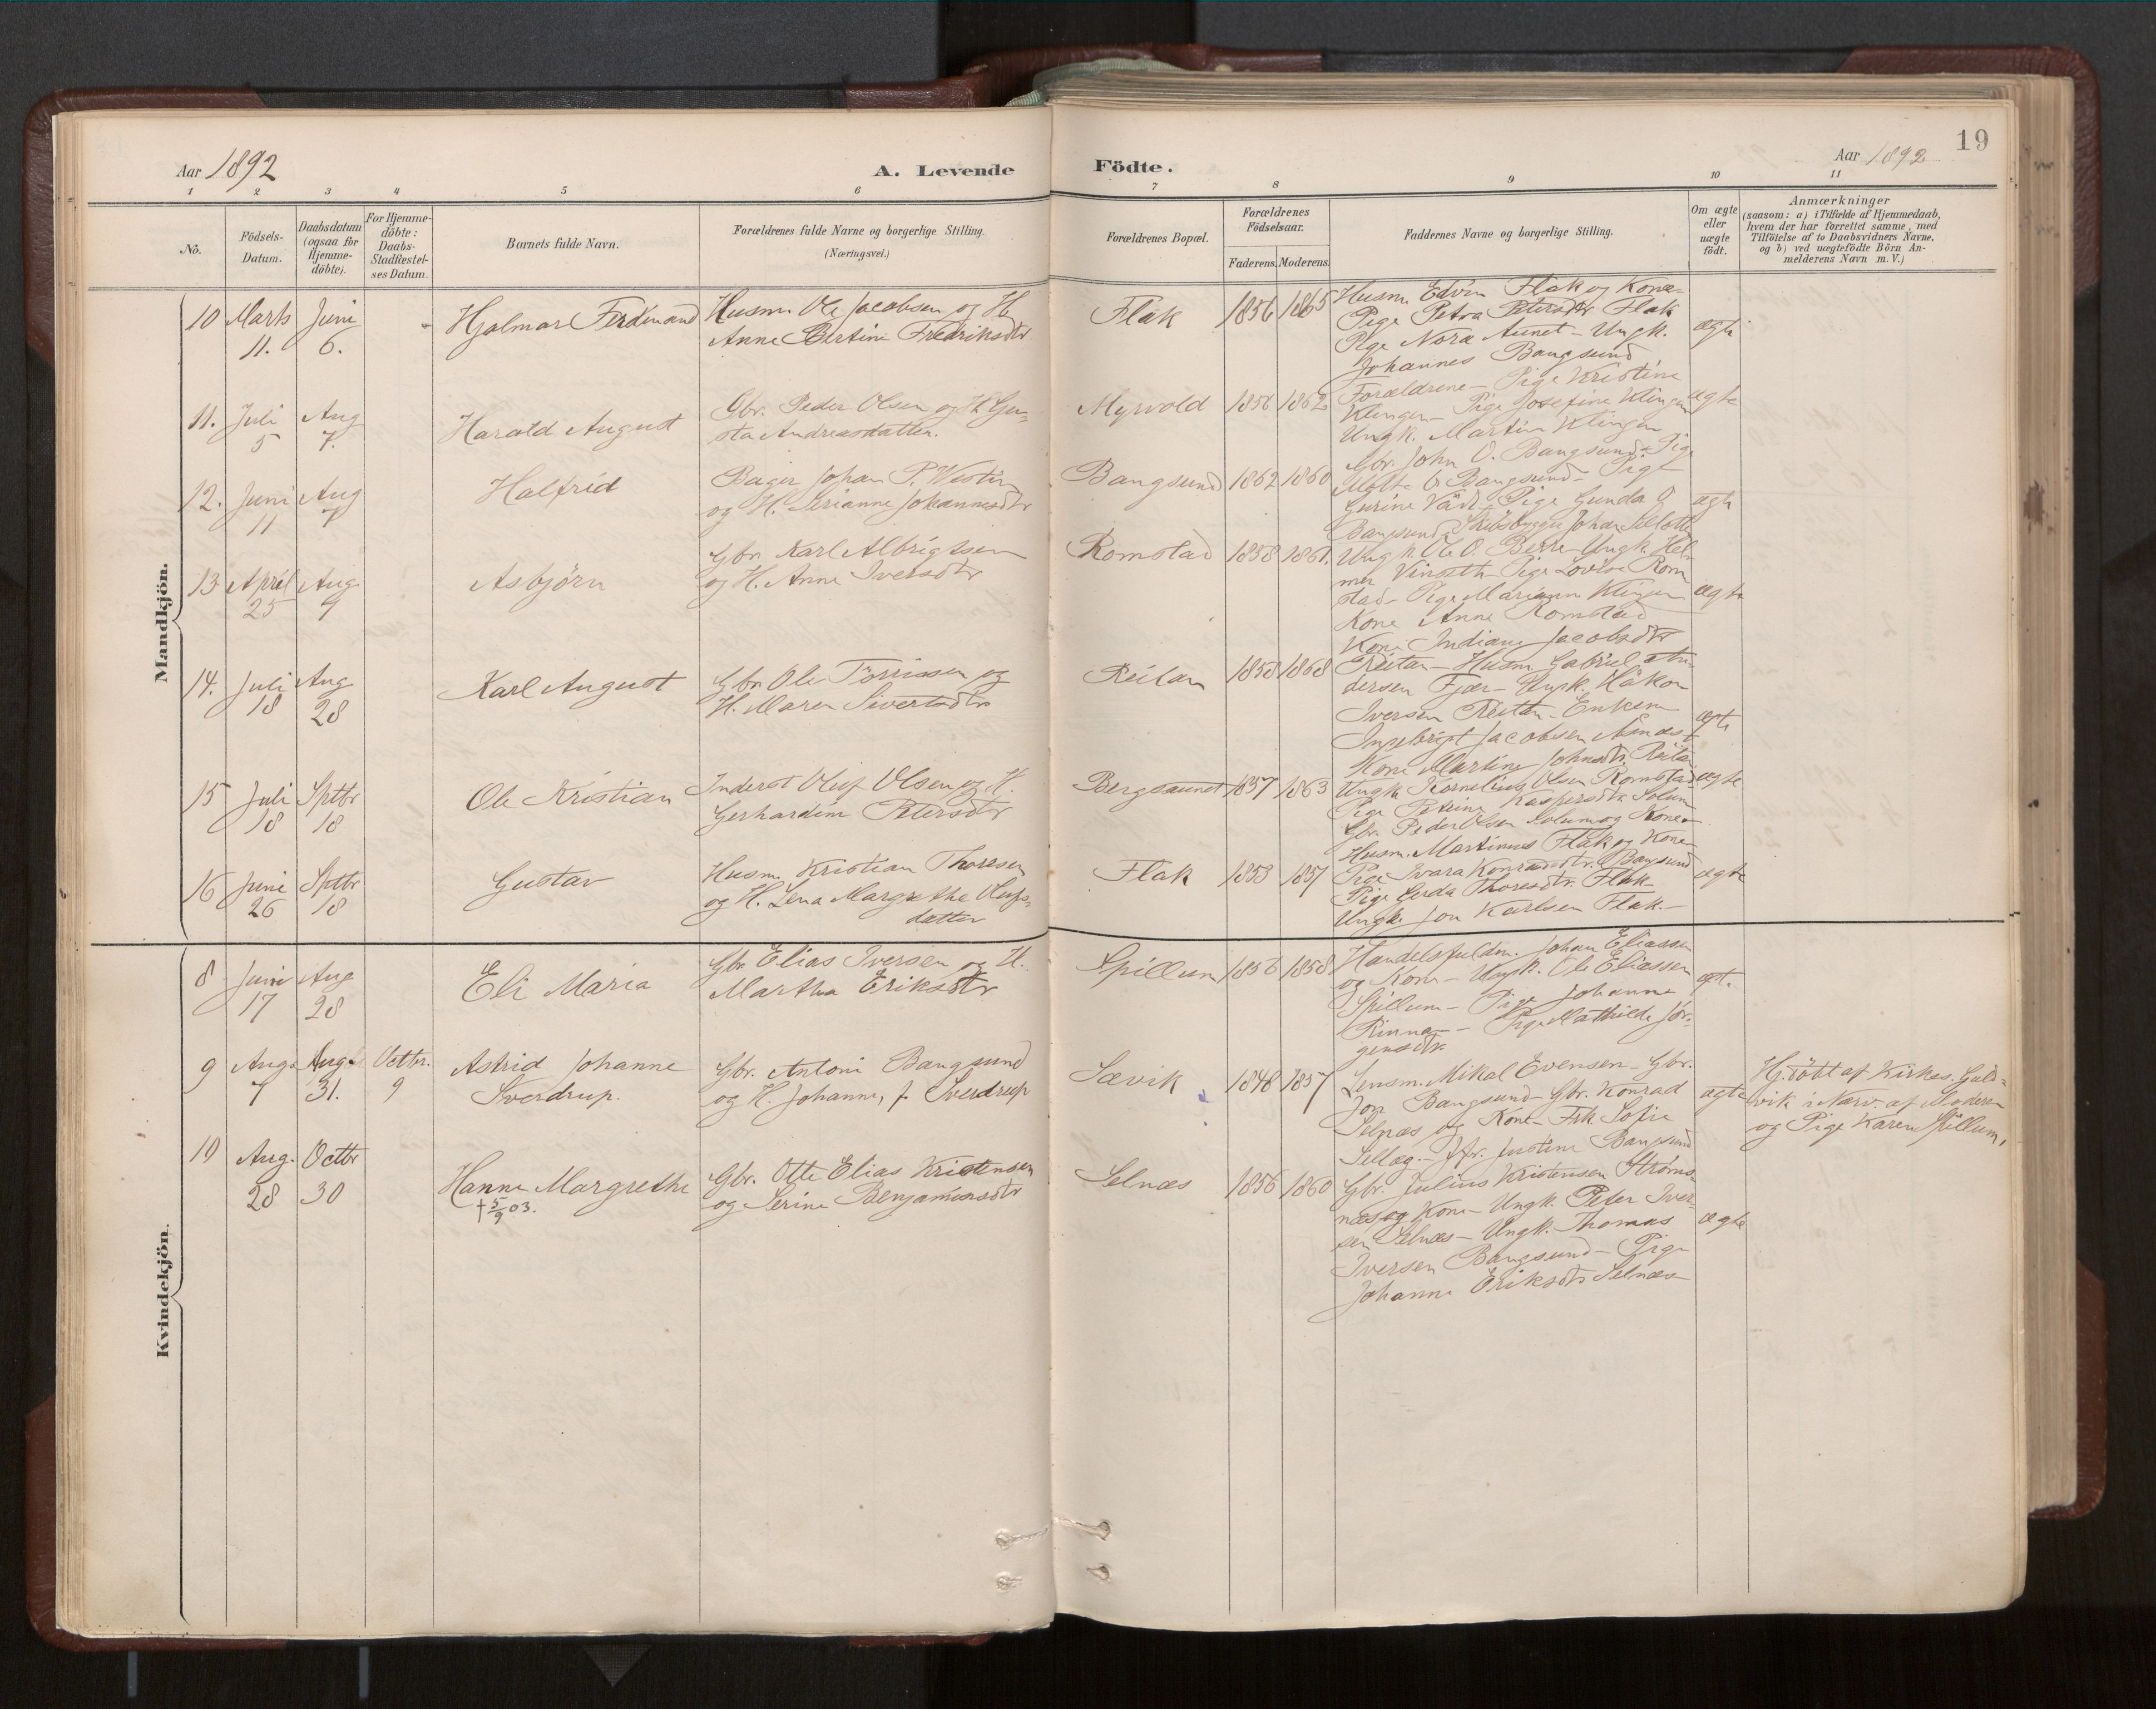 19
Aar 1892 A. Levende Födte. Aar 1892
1 2 3 4 5 6 7 8 9 10 11
No.
Födsels-Datum.
Daabsdatum (ogsaa for Hjemme-döbte).
For Hjemme-döbte: Daabs-Stadfæstel-ses Datum.
Barnets fulde Navn.
Forældrenes fulde Navne og borgerlige Stilling.
(Næringsvei.)
Forældrenes Bopæl.
Forældrenes Födselsaar.
Faderens. Moderens.
Faddernes Navne og borgerlige Stilling.
Om ægte eller uægte födt.
Anmærkninger
(saasom: a) i Tilfælde af Hjemmedaab,
hvem der har forrettet samme, med
Tilföielse af to Daabsvidners Navne,
og b) ved uægtefödte Börn An-
melderens Navn m. V.)
Mandkjön.
10 Marts 11. Juni 6.
Hjalmar Ferdinand
Husm. Ole Jacobsen og H.
Anne Bertine Fredriksdtr
Flak 1856 1865
Husm. Edvin Flak og Kone-
Pige Petra Petersdtr Flak
Pige Nora Aunet - Ungk.
Johannes Bangsund
ægte
11. Juli 5 Aug 7.
Harald August
Gbr. Peder Olsen og H. Gu-
sta Andreasdatter.
Myrvold 1856 1862
Forældrene - Pige Kristine
Klingen - Pige Josefine Klingen
Ungk. Martin Klingen
ægte
12. Juni 11 Aug 7
Halfrid
Bager Johan P. Westin
og H. Serianne Johannesdtr
Bangsund 1862 1860
Gbr. John O. Bangsund - Pige
Bangsund - Pige
Gurine - Pige Gunda O
Bangsund - Skibsbygger Johan
ægte
13 April 25 Aug 9
Asbjörn
Gbr. Karl Albrigtsen
og H. Anne Iversdtr
Romstad 1858 1861.
Ungk. Ole O. Berre - Ungk. Hel-
mer - Pige Lovise Rom
stad - Pige Mariann Klingen
Kone Anne Romstad
ægte
14. Juli 18 Aug 28
Karl August
Gbr. Ole Torrissen og
H. Maren Sivertsdtr
Reitan 1858 1868
Kone Indiane Jacobsdtr
Reitan - Husm. Gabriel An-
dersen Fjær - Ungk. Håkon
Iversen Reitan - Enkem
Ingebrigt Jacobsen
Kone Martine Johnsdtr. Reitan
ægte
15 Juli 18 Sptbr 18
Ole Kristian
Inderst Oluf Olsen og H.
Gerhardine Petersdtr
Bergsaunet 1857 1863
Ungk. Kornelius Olsen Romstad
Pige Petrine Kaspersdtr. Solum
Gbr. Peder Olsen Solum og Kone
ægte
16 Juni 26 Sptbr 18
Gustav
Husm. Kristian Thoresen
og H. Lena Margrethe Olufs-
datter
Flak 1853 1857
Husm. Martinus Flak og Kone
Pige Ivara Konradsdtr. Bangsund
Pige Gerda Thoresdtr. Flak -
Ungk. Jon Karlsen Flak -
ægte
Kvindekjön.
8 Juni 17 Aug 28
Eli Maria
Gbr. Elias Iversen og H.
Martha Eriksdtr
Spillum 1856 1858
Handelsfuldm. Johan Eliassen
og Kone - Ungk. Ole Eliassen
Spillum - Pige Johanne
- Pige Mathilde Jör-
gensdtr.
ægte
9 Aug. 7 Aug. 31. Octbr. 9
Astrid Johanne
Sverdrup.
Gbr. Antoni Bangsund
og H. Johanne, f. Sverdrup
Sævik 1848 1857
Lensm. Mikal Evensen - Gbr.
Jon Bangsund - Gbr. Konrad
Selnæs og Kone - Frk. Sofie
Sellæg - Justine Bangsund
ægte
Hj.döbt af Kirkes. Guld-
vik i Nærv. af Moderen
og Pige Karen Spillum.
10 Aug. 28 Octbr 30
Hanne Margrethe
† 5/9 03.
Gbr. Otte Elias Kristensen
og Serine Benjaminsdtr
Selnæs 1856 1860
Gbr. Julius Kristensen Ströms-
næs og Kone - Ungk. Peter Iver-
sen Selnæs - Ungk. Thomas
Iversen Bangsund - Pige
Johanne Eriksdtr Selnæs
ægte